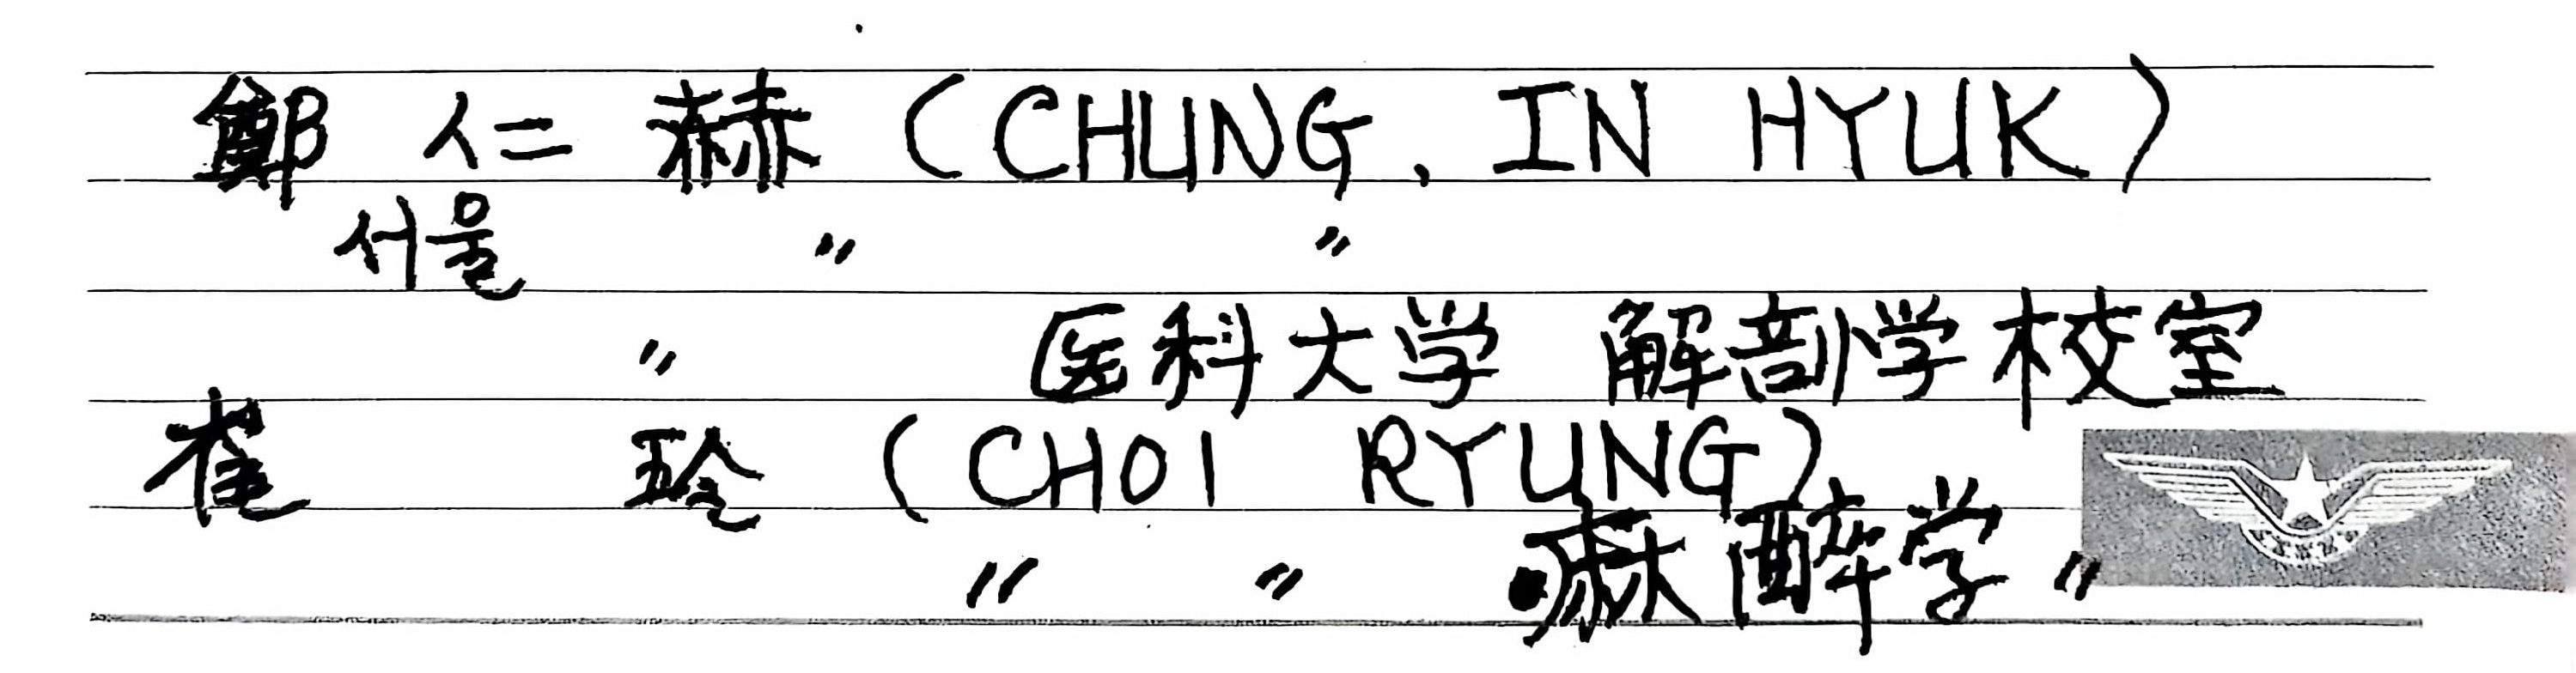 鄭 仁 赫 (CHUNG, IN HYUK)
서울 〃 〃
〃 医科大学 解剖学校室
崔 玲 (CHOI RYUNG)
〃 〃 麻酔学 〃